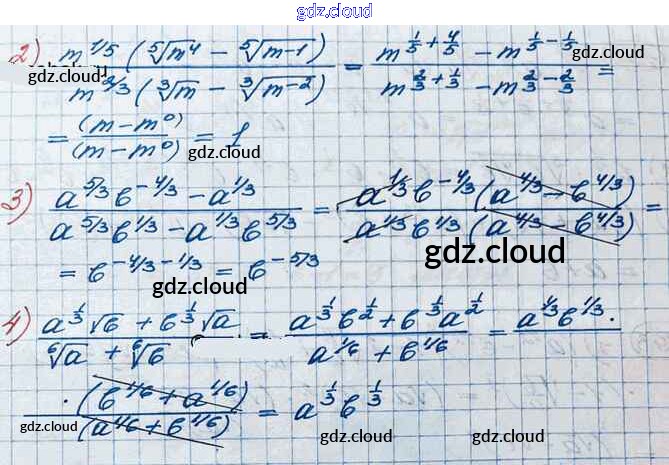 gdz.cloud
2) m^{1/5} (\sqrt[5]{m^4} - \sqrt[5]{m^{-1}}) / m^{2/3} (\sqrt[3]{m} - \sqrt[3]{m^{-2}}) = m^{1/5 + 4/5} - m^{1/5 - 1/5} / m^{2/3 + 1/3} - m^{2/3 - 2/3} =
gdz.cloud gdz.cloud
= (m - m^0) / (m - m^0) = 1
gdz.cloud
3) a^{5/3} b^{-4/3} - a^{1/3} / a^{5/3} b^{1/3} - a^{1/3} b^{5/3} = a^{1/3} b^{-4/3} (a^{4/3} - b^{4/3}) / a^{1/3} b^{1/3} (a^{4/3} - b^{4/3}) =
gdz.cloud
= b^{-4/3 - 1/3} = b^{-5/3}
gdz.cloud
4) a^{1/3} \sqrt{b} + b^{1/3} \sqrt{a} / \sqrt[6]{a} + \sqrt[6]{b} = a^{1/3} b^{1/2} + b^{1/3} a^{1/2} / a^{1/6} + b^{1/6} = a^{1/3} b^{1/3} ·
gdz.cloud
· (b^{1/6} + a^{1/6}) / (a^{1/6} + b^{1/6}) = a^{1/3} b^{1/3}
gdz.cloud gdz.cloud gdz.cloud